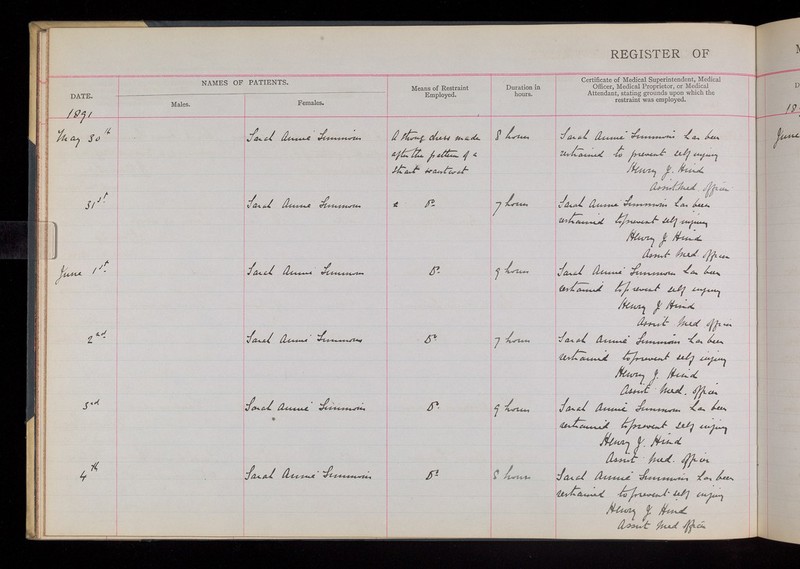 REGISTER OF
DATE.
NAMES OF PATIENTS.
Males.
Females.
Means of Restraint
Employed.
Duration in
hours.
Certificate of Medical Superintendent, Medical
Officer, Medical Proprietor, or Medical
Attendant, stating grounds upon which the
restraint was employed.
1891
May 30th
Sarah Annie Simmons
A strong dress made
after the pattern of a
strait waistcoat
8 hours
Sarah Annie Simmons has been
restrained to prevent self injury
Henry J. Hind
Assist Med. Officer
31st
Sarah Annie Simmons
Do
7 hours
Sarah Annie Simmons has been
restrained to prevent self injury
Henry J Hind
Assist Med Officer
June 1st
Sarah Annie Simmons
Do
9 hours
Sarah Annie Simmons has been
restrained to prevent self injury
Henry J Hind
Assist Med Officer
2nd
Sarah Annie Simmons
Do
7 hours
Sarah Annie Simmons has been
restrained to prevent self injury
Henry J. Hind
Assist Med. Officer
3rd
Sarah Annie Simmons
Do
9 hours
Sarah Annie Simmons has been
restrained to prevent self injury
Henry J. Hind
Assist Med. Officer
4th
Sarah Annie Simmons
Do
8 hours
Sarah Annie Simmons has been
restrained to prevent self injury
Henry J Hind
Assist Med Officer
June